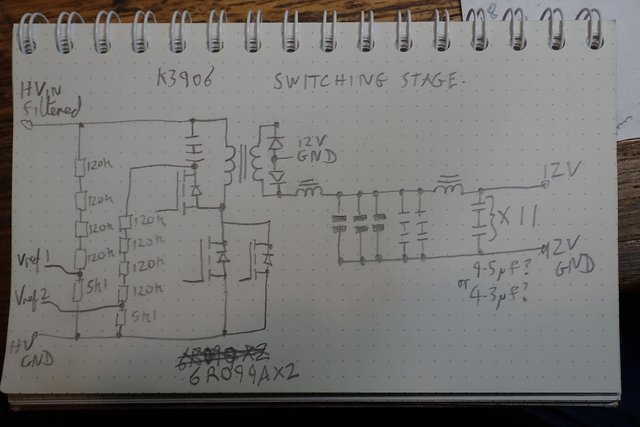 K3906 SWITCHING STAGE.
HVIN
Filtered
12V
GND
120k
120k
120k
120k
5k1
120k
120k
120k
120k
5k1
Vref1
Vref2
12V
X 11
12V
GND
4.5µF?
or
4.3µF?
HV
GND
6R099AX2